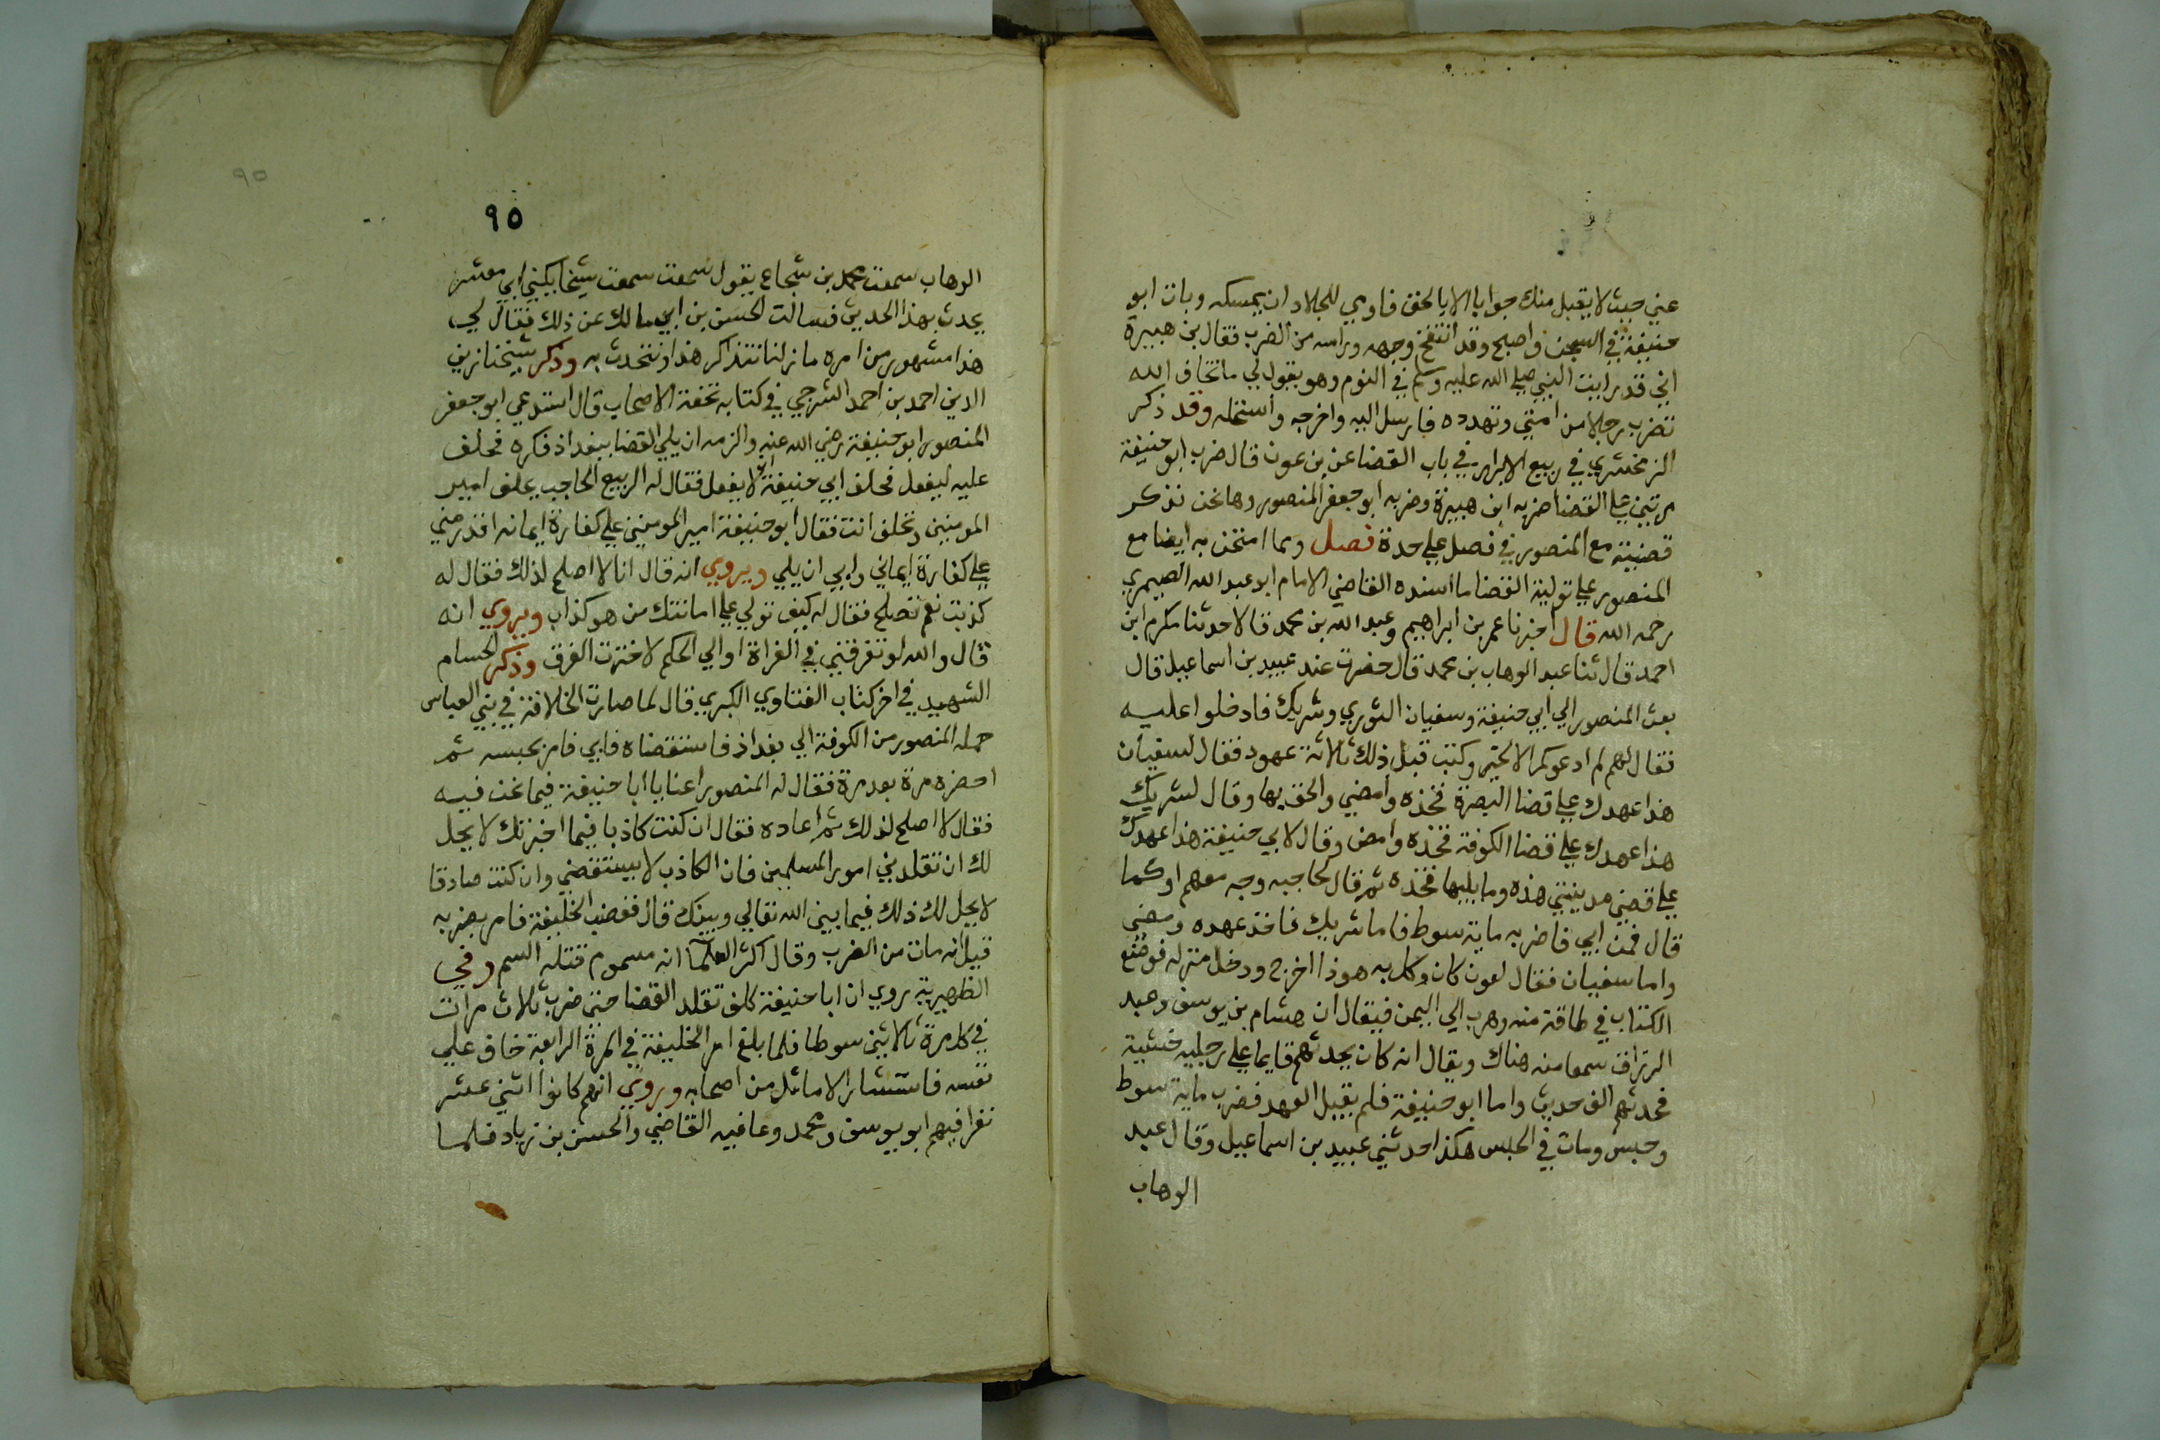 عني حيث لا يقبل منك جوابا الا بالحق فاومي للجلاد ان يمسكه وبات ابو
حنيفة في السجن واصبح وقد انتفخ وجهه وراسه من الضرب فقال بن هبيرة
اني قد رايت النبي صلي الله عليه وسلم في النوم وهو يقول لي ما تخاف الله
تضرب رجلا من امتي وتهدده فارسل اليه واخرجه واستحله وقد ذكر
الزمخشري في ربيع الابرار في باب القضا عن بن عون قال ضرب ابو حنيفة
مرتين علي القضا ضربه ابن هبيرة وضربه ابو جعفر المنصور وها نحن نذكر
قضيته مع المنصور في فصل علي حدة فصل ومما امتحن به ايضا مع
المنصور علي تولية القضا ما اسنده القاضي الامام ابو عبد الله الصيمري
رحمه الله قال اخبرنا عمر بن ابراهيم وعبد الله بن محمد قالا حدثنا مكرم ابن
احمد قال ثنا عبد الوهاب بن محمد قال حضرت عند عبيد بن اسماعيل قال
بعث المنصور الي ابي حنيفة وسفيان الثوري وشريك فادخلوا عليه
فقال لهم لم ادعوكم الا لخير وكتب قبل ذلك ثلاثة عهود فقال لسفيان
هذا عهدك علي قضا البصرة فخذه وامضي والحق بها وقال لشريك
هذا عهدك علي قضا الكوفة فخذه وامض وقال لابي حنيفة هذا عهدك
علي قضي مدينتي هذه وما يليها فخذه ثم قال لحاجبه وجه معهم او كما
قال فمن ابي فاضربه ماية سوط فاما شريك فاخذ عهده ومضي
واما سفيان فقال لعون كان وكل به هوذا اخرج ودخل منزله فوضع
الكتاب في طاقة منه وهرب الي اليمن فيقال ان هشام بن يوسف وعبد
الرزاق سمعا منه هناك ويقال انه كان يحدثهم قايما علي رجليه خشية
فحدثهم الف حديث واما ابو حنيفة فلم يقبل العهد فضرب ماية سوط
وحبس ومات في الحبس هكذا حدثني عبيد بن اسماعيل وقال عبد
الوهاب
٩٥
٩٥
الوهاب سمعت محمد بن شجاع يقول سمعت سمعت شيخا يكني ابي معشر
يحدث بهذا الحديث فسالت الحسن بن ابي مالك عن ذلك فقال لي
هذا مشهور من امره ما زلنا نتذاكر هذا ونتحدث به وذكر شيخنا زين
الدين احمد بن احمد الشرجي في كتابه تحفة الاصحاب قال استدعي ابو جعفر
المنصور ابو حنيفة رضي الله عنه والزمه ان يلي القضا ببغداذ فكره فحلف
عليه ليفعل فحلف ابي حنيفة لا يفعل فقال له الربيع الحاجب يحلف امير
المومنين وتحلف انت فقال ابو حنيفة امير المومنين علي كفارة ايمانه اقدر مني
علي كفارة ايماني وابي ان يلي ويروي انه قال انا لا اصلح لذلك فقال له
كذبت نعم تصلح فقال له كيف تولي علي امانتك من هو كذاب ويروي انه
قال والله لو تغرقني في الفراة او الي الحكم لاخترت الغرق وذكر الحسام
الشهيد في اخر كتاب الفتاوي الكبري قال لما صارت الخلافة في بني العباس
حمله المنصور من الكوفة الي بغداذ فاستقضاه فابي فامر بحبسه ثم
احضره مرة بعد مرة فقال له المنصور اعنا يا ابا حنيفة فيما نحن فيه
فقال لا اصلح لذلك ثم اعاده فقال ان كنت كاذبا فيما اخبرتك لا يحل
لك ان تقلدني امور المسلمين فان الكاذب لا يستقضي وان كنت صادقا
لا يحل لك ذلك فيما بين الله تعالي وبينك قال فغضب الخليفة فامر بضربه
قيل انه مات من الضرب وقال اكثر العلما انه مسموم قتله السم وفي
الظهيرية روي ان ابا حنيفة كلف تقلد القضا حتي ضرب ثلاث مرات
في كل مرة ثلاثين سوطا فلما بلغ امر الخليفة في المرة الرابعة خاف علي
نفسه فاستشار الاماثل من اصحابه وروي انهم كانوا اثني عشر
نفرا فيهم ابو يوسف ومحمد وعافيه القاضي والحسن بن زياد فلما